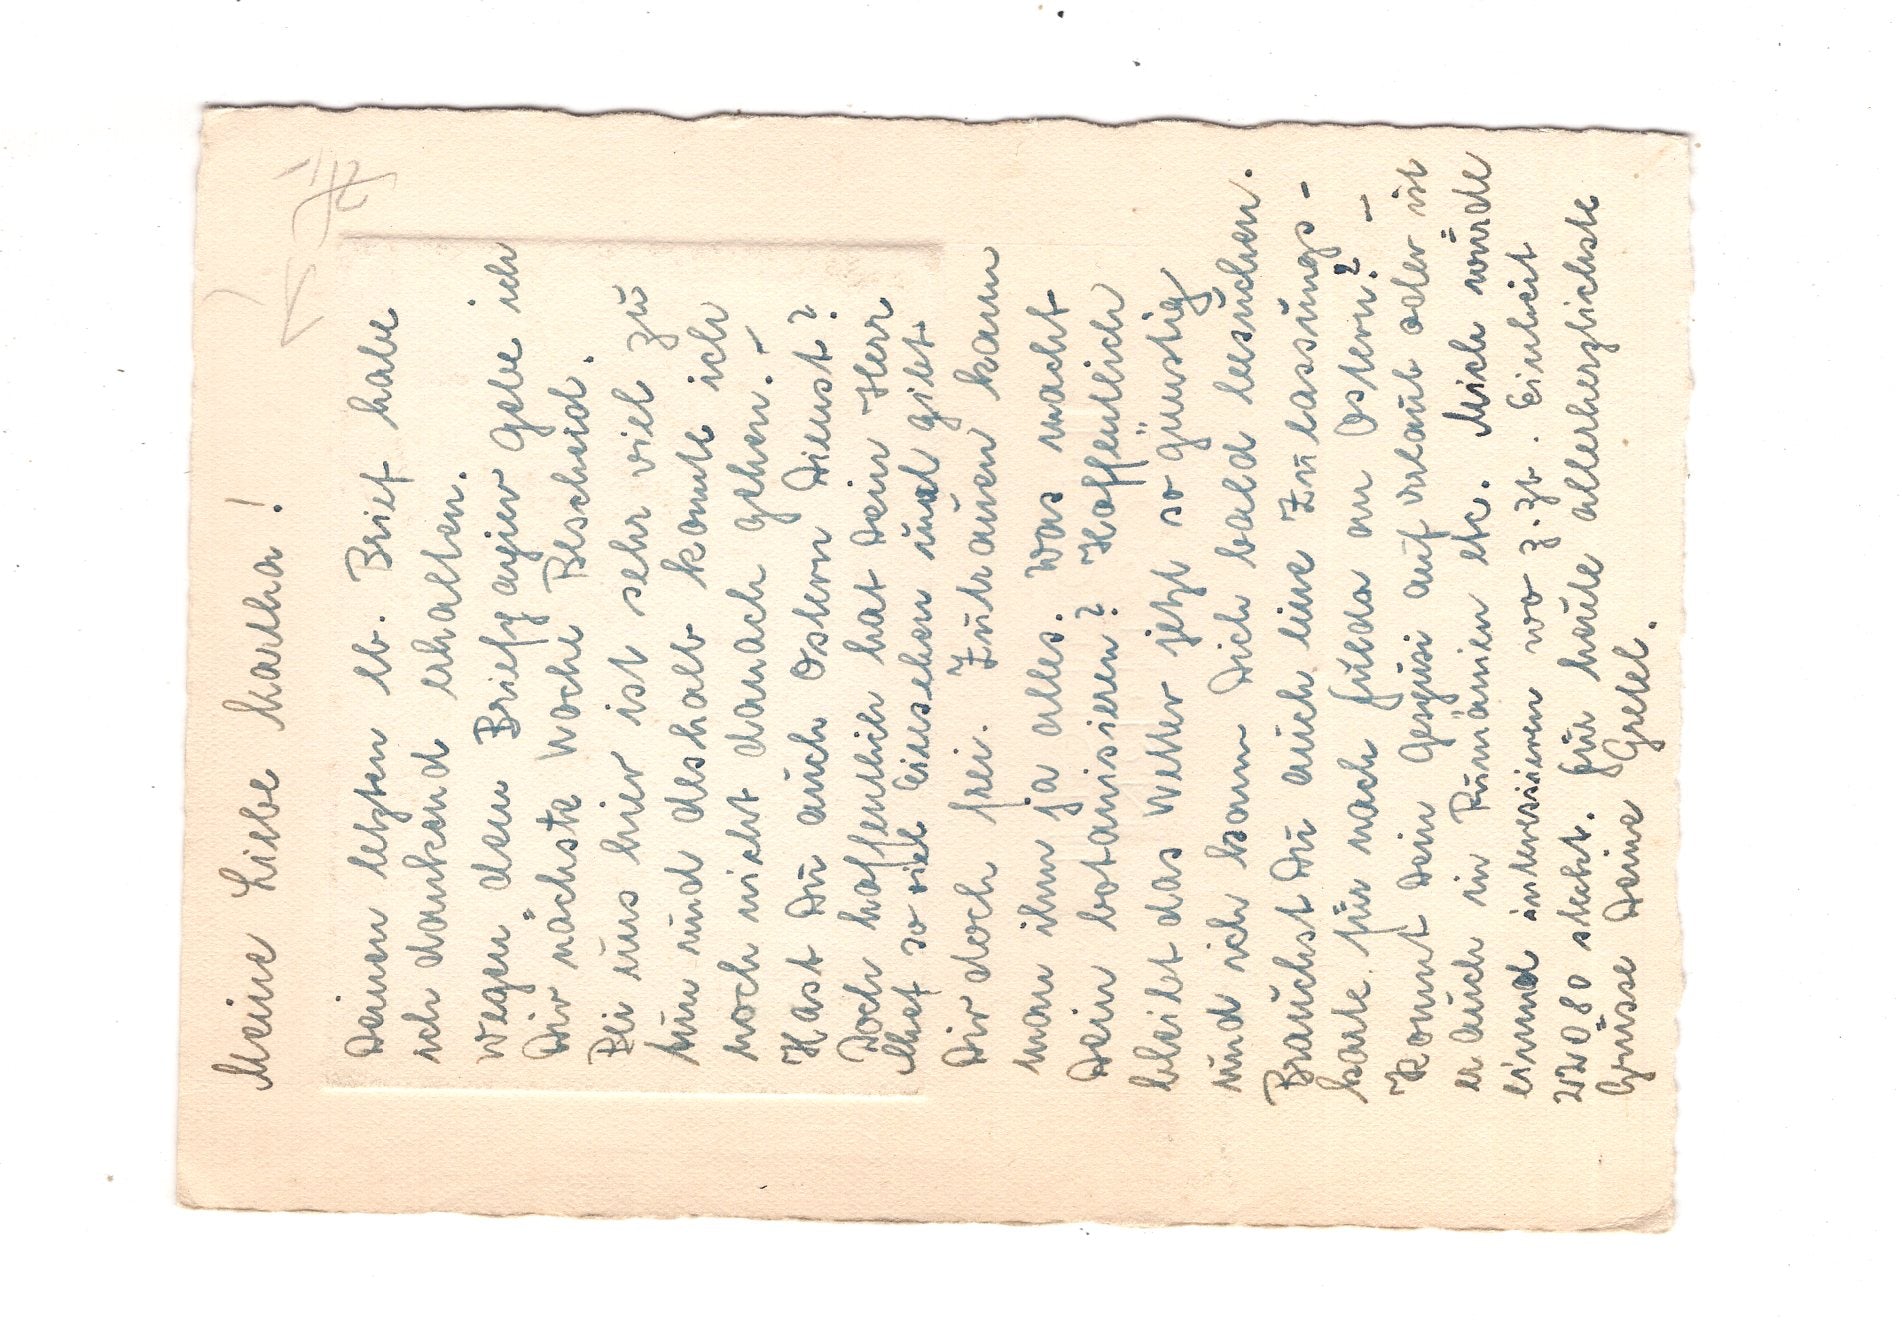 Meine Liebe Martha!
Deinen letzten lb. Brief habe
ich dankend erhalten.
Wegen dem Briefpapier gebe ich
Dir nächste Woche Bescheid.
Bei uns hier ist sehr viel zu
tun und deshalb konnte ich
noch nicht danach gehen. –
Hast Du auch Ostern Dienst?
Doch hoffentlich hat Dein Herr
Chef so viel Einsehen und gibt
Dir doch frei. Zutrauen kann
man ihm ja alles. Was macht
Dein botanisieren? Hoffentlich
bleibt das Wetter jetzt so günstig
und ich kann Dich bald besuchen.
Brauchst Du auch eine Zulassungs-
karte für nach Fulda an Ostern? –
Kommt Dein Gespusi auf Urlaub oder ist
er auch in Rumänien etc. Mich würde
einmal interessieren wo z. Zt. Einheit
22080 steckt. Für heute allerherzlichste
Grüsse Deine Gretel.